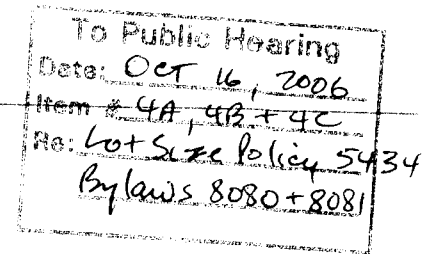 To Public Hearing
Date: OCT 16, 2006
Item # 4A, 4B + 4C
Re: Lot Size Policy 5434
Bylaws 8080 + 8081